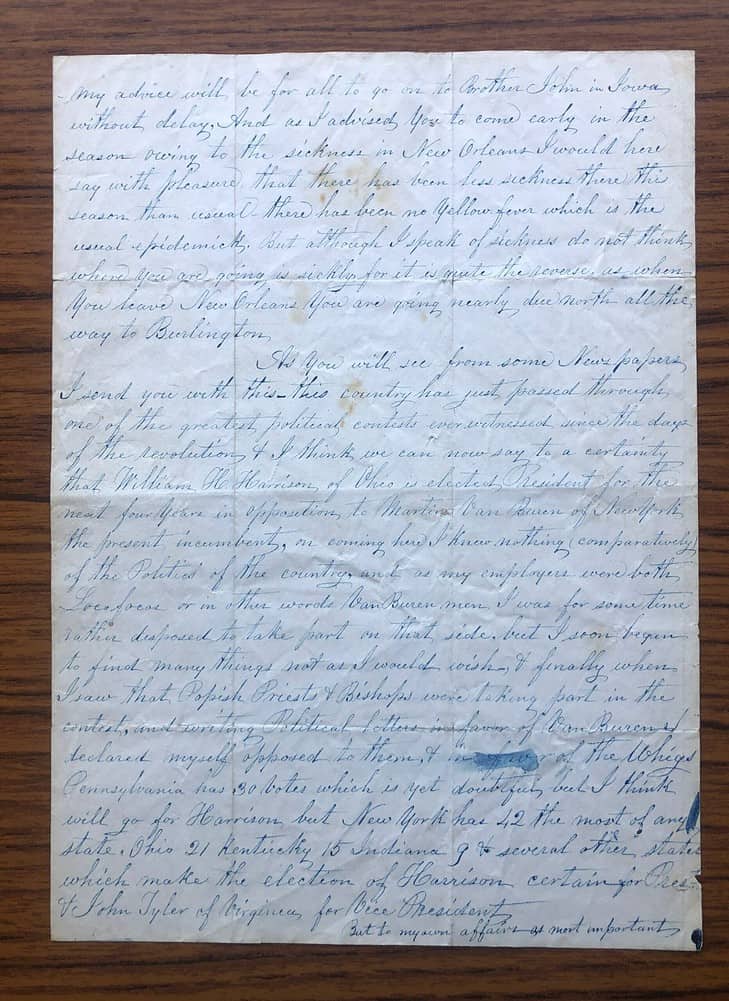 My advice will be for all to go on to Brother John in Iowa
without delay. And as I advised You to come early in the
season owing to the sickness in New Orleans I would here
say with pleasure that there has been less sickness there this
season than usual there has been no Yellow fever which is the
usual epidemick. But although I speak of sickness do not think
where you are going is sickly for it is quite the reverse, as when
You leave New Orleans You are going nearly due north all the
way to Burlington
As You will see from some News papers
I send you with this - this country has just passed through
one of the greatest political contests ever witnessed since the days
of the revolution, & I think we can now say to a certainty
that William H Harrison of Ohio is elected President for the
next four Years in opposition to Martin Van Buren of New York
the present incumbent, on coming here I knew nothing (comparatively)
of the Politics of the country, and as my employers were both
Locofocos or in other words Van Buren men, I was for some time
rather disposed to take part on that side, but I soon began
to find many things not as I would wish, & finally when
I saw that Popish Priests & Bishops were taking part in the
contest, and writing Political letters in favor of Van Buren I
declared myself opposed to them, & in favor of the Whigs
Pennsylvania has 30 Votes which is yet doubtful, but I think
will go for Harrison but New York has 42 the most of any
state, Ohio 21 Kentucky 15 Indiana 9 & several other states
which make the election of Harrison certain for Prest
& John Tyler of Virginea for Vice President
But to my own affairs as most important